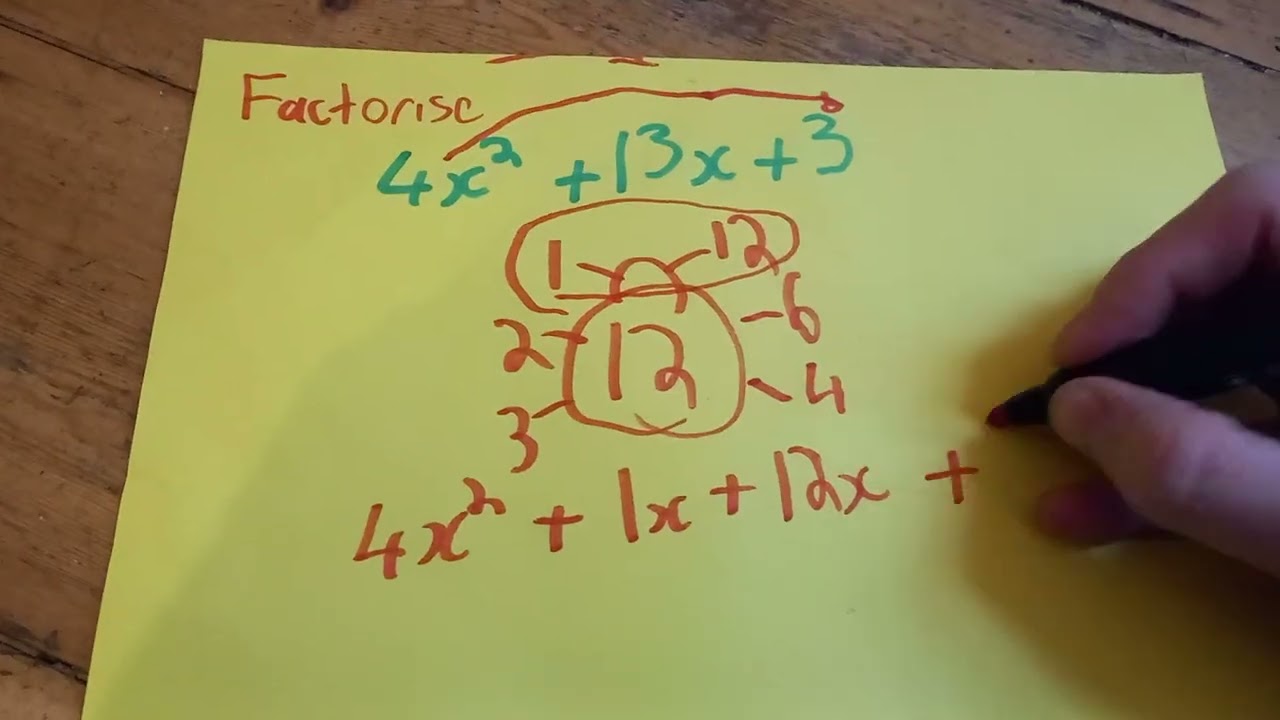 Factorise
4x² + 13x + 3
1 12
2 6
12
3 4
4x² + 1x + 12x +